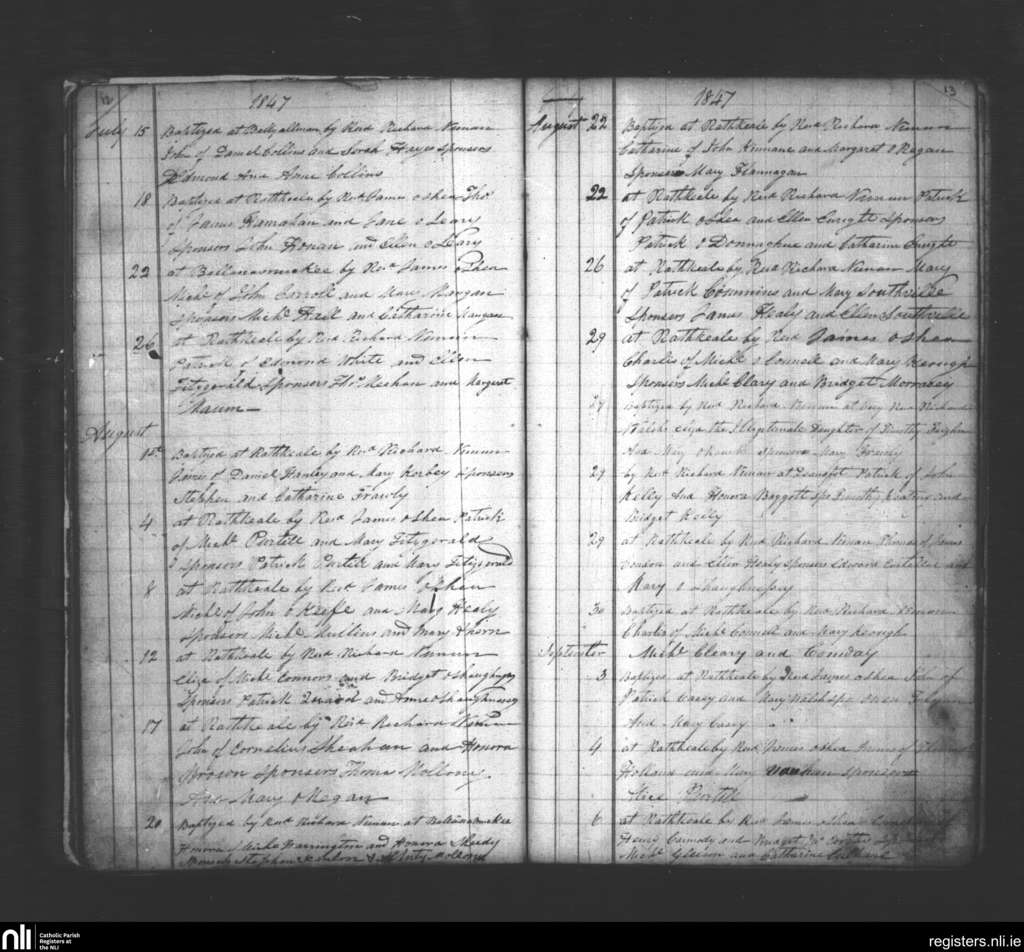 12
1847
July 15 Baptized at Ballyallinan by Revd Richard Nunan
John of Daniel Collins and Sarah Hayes Sponsors
Edmond And Anne Collins
18 Baptized at Rathkeale by Revd James o Shea Thos
of James Hanrahan and Jane o Leary
Sponsors John Honan and Ellen o Leary
22 at by Revd James o Shea
Michl of John Carroll and Mangan
Sponsors Michl and Catharine Mangan
26 at Rathkeale by Revd Richard Nunan
Patrick of Edmond White and Ellen
Fitzgerald Sponsors Thos Meehan and Margaret
August
1st Baptized at Rathkeale by Revd Richard Nunan
of Daniel Hanley and Mary Kerbey Sponsors
Stephen and Catharine Frawly
4 at Rathkeale by Revd James o Shea Patrick
of Michl Purtell and Mary Fitzgerald
Sponsors Patrick Purtell and Mary Fitzgerald
8 at Rathkeale by Revd James o Shea
Michl of John o Keefe and Mary Healy
Sponsors Michl Mullins and Mary Ahern
12 at Rathkeale by Revd Richard Nunan
Eliza of Michl Connors and Bridget o Shaughnessy
Sponsors Patrick and Anne o Shaughnessy
17 at Rathkeale by Revd Richard Nunan
John of Cornelius Sheahan and Honora
Brown Sponsers Thomas Mollony
And Mary o Regan
20 Baptized by Revd Richard Nunan at
Honora of Michl Harrington and Honora Sheedy
Stephen and Mollony
13
1847
August 22 Baptized at Rathkeale by Revd Richard Nunan
Catharine of John Kinnane and Margaret o Regan
Sponsers Mary Flannagan
22 at Rathkeale by Revd Richard Nunan Patrick
of Patrick o Shea and Ellen Enright Sponsors
Patrick o Donnaghue and Catharine Enright
26 at Rathkeale by Revd Richard Nunan Mary
of Patrick Commins and Mary Southville
Sponsors James Healy and Ellen Southville
29 at Rathkeale by Revd James o Shea
Charles of Michl o Connell and Mary Keough
Sponsors Michl Clary and Bridget Morrassy
29 Baptized by Revd Richard Nunan at Very Revd Richard
Walsh's Eliza the Illegitimate Daughter of Timothy
And Mary Sponsers Mary
29 by Revd Richard Nunan at Patrick of John
Kelly And Honora Baggott Sps Timothy and
Bridget Kelly
29 at Rathkeale by Revd Richard Nunan Thomas of James
and Ellen Sponsers Edward and
Mary o Shaughnessy
30 Baptized at Rathkeale by Revd Richard Nunan
Charles of Michl Connell and Mary Keough
September Michl Cleary and
3 Baptized at Rathkeale by Revd James o Shea John of
Patrick Casey and Mary Walsh Sps
And Mary Casey
4 at Rathkeale by Revd James o Shea of
Holland and Mary Sponsors
Alice Purtill
6 at Rathkeale by Revd James o Shea
Henry Carmody and Bridget
Michl Gleeson and Catharine
nli
Catholic Parish
Registers at
the NLI
registers.nli.ie